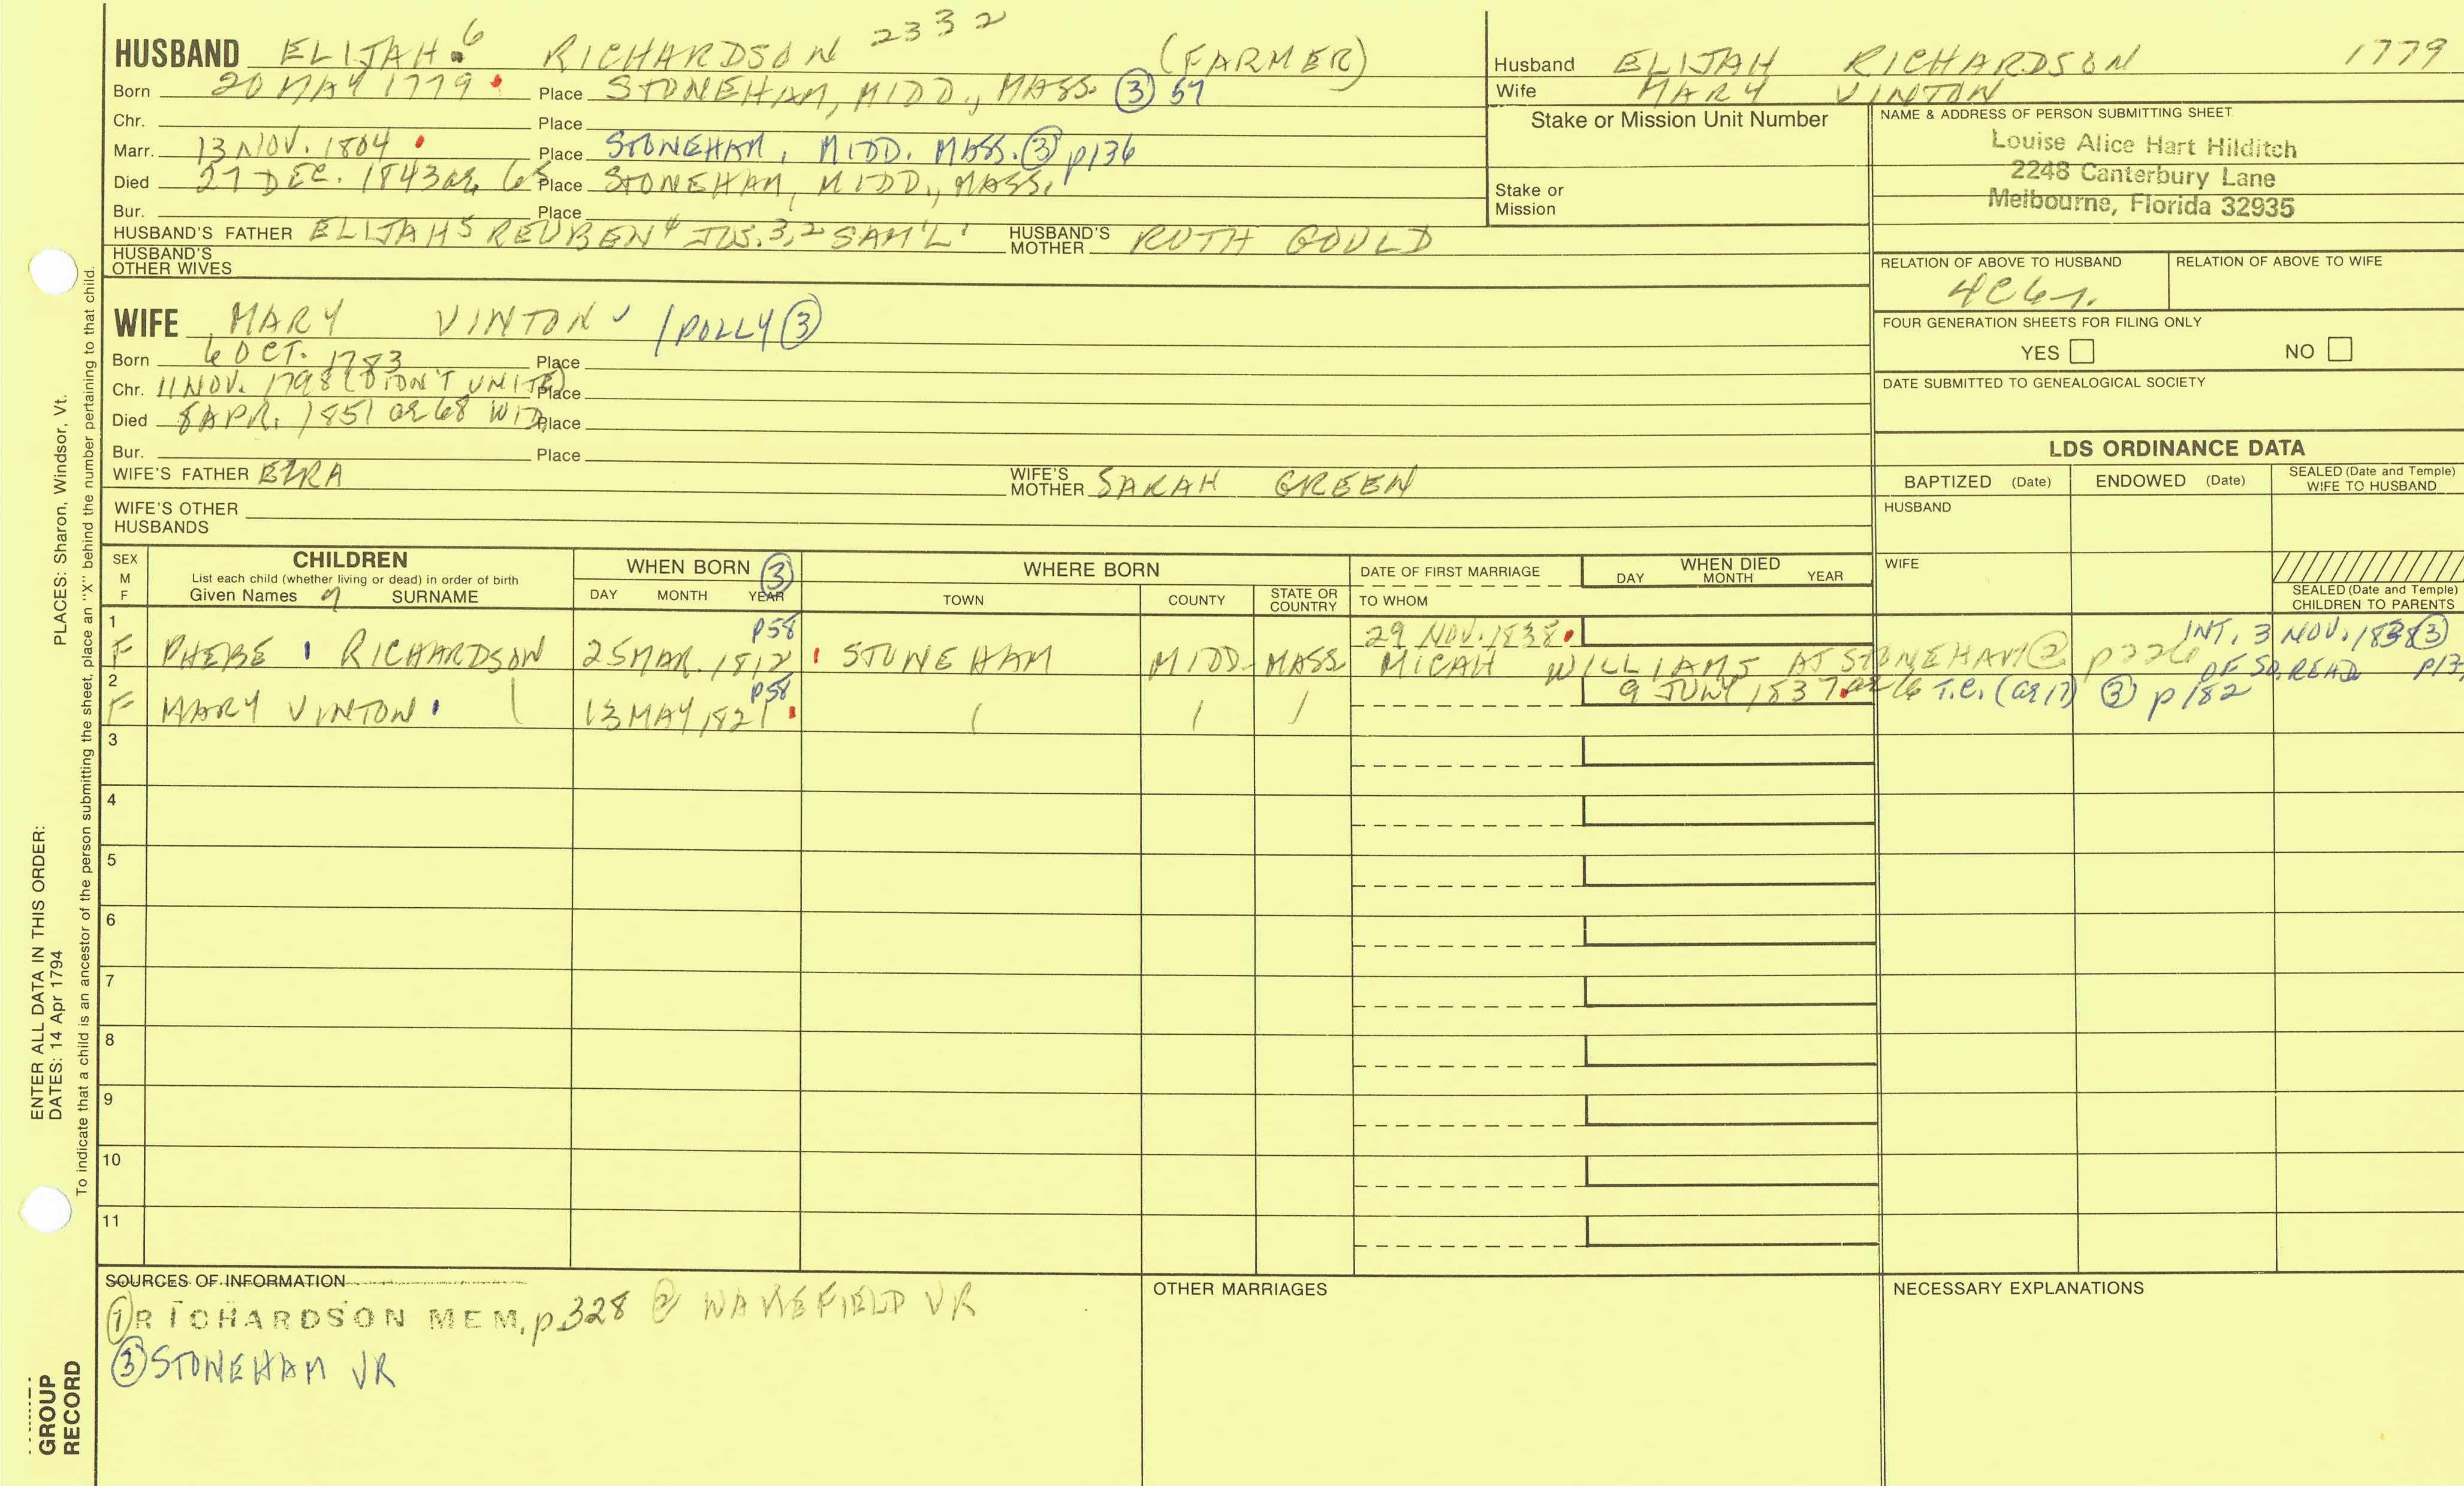 HUSBAND ELIJAH 6 RICHARDSON 2332 (FARMER)
Born 20 MAY 1779 Place STONEHAM, MIDD., MASS. (3) 57
Chr. Place
Marr. 13 NOV. 1804 Place STONEHAM, MIDD. MASS. (3) p136
Died 27 DEC. 1843 ae 65 Place STONEHAM, MIDD., MASS.
Bur. Place
HUSBAND'S FATHER ELIJAH 5 REUBEN 4 JOS. 3,2 SAM'L 1 HUSBAND'S MOTHER RUTH GOULD
HUSBAND'S OTHER WIVES
Husband ELIJAH RICHARDSON 1779
Wife MARY VINTON
Stake or Mission Unit Number
Stake or Mission
NAME & ADDRESS OF PERSON SUBMITTING SHEET
Louise Alice Hart Hilditch
2248 Canterbury Lane
Melbourne, Florida 32935
RELATION OF ABOVE TO HUSBAND RELATION OF ABOVE TO WIFE
WIFE MARY VINTON / POLLY (3)
Born 6 OCT. 1783 Place
Chr. 11 NOV. 1798 (DIDN'T UNITE) Place
Died 8 APR. 1851 ae 68 WID. Place
Bur. Place
WIFE'S FATHER EZRA WIFE'S MOTHER SARAH GREEN
WIFE'S OTHER HUSBANDS
FOUR GENERATION SHEETS FOR FILING ONLY
YES NO
DATE SUBMITTED TO GENEALOGICAL SOCIETY
LDS ORDINANCE DATA
BAPTIZED (Date) ENDOWED (Date) SEALED (Date and Temple) WIFE TO HUSBAND
HUSBAND
WIFE
SEALED (Date and Temple) CHILDREN TO PARENTS
SEX M F
CHILDREN
List each child (whether living or dead) in order of birth
Given Names SURNAME
WHEN BORN (3)
DAY MONTH YEAR
WHERE BORN
TOWN COUNTY STATE OR COUNTRY
DATE OF FIRST MARRIAGE
TO WHOM
WHEN DIED
DAY MONTH YEAR
1 p58 29 NOV. 1838 INT. 3 NOV. 1838 (3)
F PHEBE RICHARDSON 25 MAR. 1812 STONEHAM MIDD. MASS MICAH WILLIAMS AT STONEHAM (2) p226 OF SO. READ p13
2 p58 9 JUNY 1837 ae 16 T.C. (ae 17) (3) p182
F MARY VINTON 13 MAY 1821
3
4
5
6
7
8
9
10
11
SOURCES OF INFORMATION
(1) RICHARDSON MEM. p328 (2) WAKEFIELD VR
(3) STONEHAM VR
OTHER MARRIAGES
NECESSARY EXPLANATIONS
ENTER ALL DATA IN THIS ORDER:
DATES: 14 Apr 1794 PLACES: Sharon, Windsor, Vt.
To indicate that a child is an ancestor of the person submitting the sheet, place an "X" behind the number pertaining to that child.
GROUP
RECORD